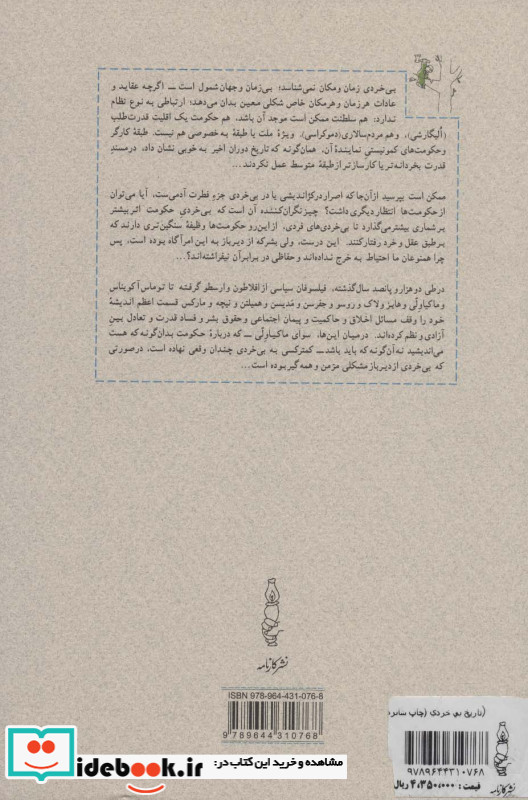 بی‌خردی زمان و مکان نمی‌شناسد؛ بی‌زمان و جهان شمول است ــ اگرچه عقاید و
عادات هر زمان و هر مکان خاص شکلی معین بدان می‌دهد؛ ارتباطی به نوع نظام
ندارد: هم سلطنت ممکن است موجد آن باشد، هم حکومت یک اقلیت قدرت‌طلب
(اُلیگارشی)، و هم مردم‌سالاری (دموکراسی). ویژهٔ ملت یا طبقهٔ به خصوصی هم نیست. طبقهٔ کارگر
و حکومت‌های کمونیستیِ نمایندهٔ آن، همان‌گونه که تاریخ دوران اخیر به خوبی نشان داد، در مسندِ
قدرت بخردانه‌تر یا کارسازتر از طبقهٔ متوسط عمل نکردند...
ممکن است بپرسید از آن‌جا که اصرار در کژاندیشی یا در بی‌خردی جزءِ فطرت آدمی‌ست، آیا می‌توان
از حکومت‌ها انتظار دیگری داشت؟ چیز نگران‌کننده آن است که بی‌خردی حکومت اثر بیشتر
بر شماری بیشتر می‌گذارد تا بی‌خردی‌های فردی. از این‌رو حکومت‌ها وظیفهٔ سنگین‌تری دارند که
بر طبق عقل و خرد رفتار کنند. این درست، ولی بشر که از دیرباز به این امر آگاه بوده است، پس
چرا همنوعان ما احتیاط به خرج نداده‌اند و حفاظی در برابر آن نیفراشته‌اند؟...
در طی دو هزار و پانصد سال گذشته، فیلسوفان سیاسی از افلاطون و ارسطو گرفته تا توماس آکویناس
و ماکیاولّی و هابز و لاک و روسو و جفرسن و مَدیسن و همیلتن و نیچه و مارکس قسمت اعظم اندیشهٔ
خود را وقف مسائل اخلاق و حاکمیت و پیمان اجتماعی و حقوق بشر و فساد قدرت و تعادل بین
آزادی و نظم کرده‌اند. در میان این‌ها، سوای ماکیاولّی ــ که دربارهٔ حکومت بدان‌گونه که هست
می‌اندیشید نه آن‌گونه که باید باشد ــ کمتر کسی به بی‌خردی چندان وقعی نهاده است، در صورتی
که بی‌خردی از دیرباز مشکلی مزمن و همه‌گیر بوده است...
نشر کارنامه
ISBN 978-964-431-076-8
9 789644 310768
(تاریخ بی خردی (چاپ
۹۷۸۹۶۴۴۳۱۰۷۶۸
قیمت: ۴،۳۵۰،۰۰۰ ریال
نشر کارنامه
مشاهده و خرید این کتاب در:
idebook.ir